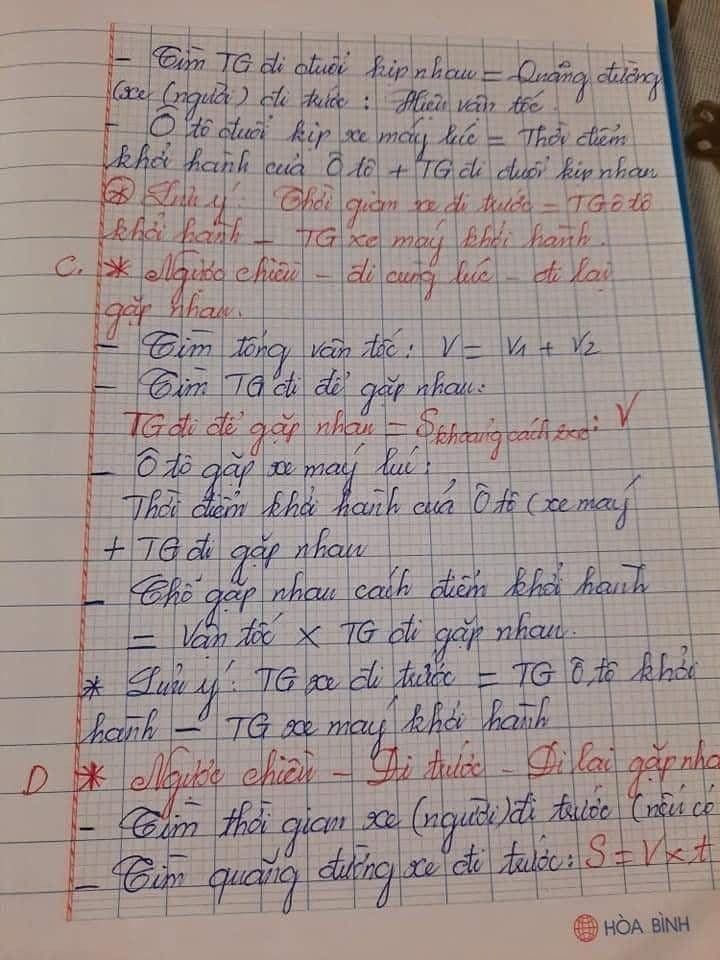 - Tìm TG đi đuổi kịp nhau = Quãng đường
(xe (người) đi trước : Hiệu vận tốc.
- Ô tô đuổi kịp xe máy lúc = Thời điểm
khởi hành của Ô tô + TG đi đuổi kịp nhau
* Lưu ý: Thời gian xe đi trước = TG ô tô
khởi hành - TG xe máy khởi hành.
C. * Ngược chiều - đi cùng lúc - đi lại
gặp nhau.
- Tìm tổng vận tốc: V = V1 + V2
- Tìm TG đi để gặp nhau:
TG đi để gặp nhau = S khoảng cách 2xe : V
- Ô tô gặp xe máy lúc:
Thời điểm khởi hành của Ô tô (xe máy
+ TG đi gặp nhau
- Chỗ gặp nhau cách điểm khởi hành
= Vận tốc x TG đi gặp nhau.
* Lưu ý: TG xe đi trước = TG Ô tô khởi
hành - TG xe máy khởi hành
D * Ngược chiều - Đi trước - Đi lại gặp nha
- Tìm thời gian xe (người) đi trước (nếu có
- Tìm quãng đường xe đi trước: S = V x t
HÒA BÌNH